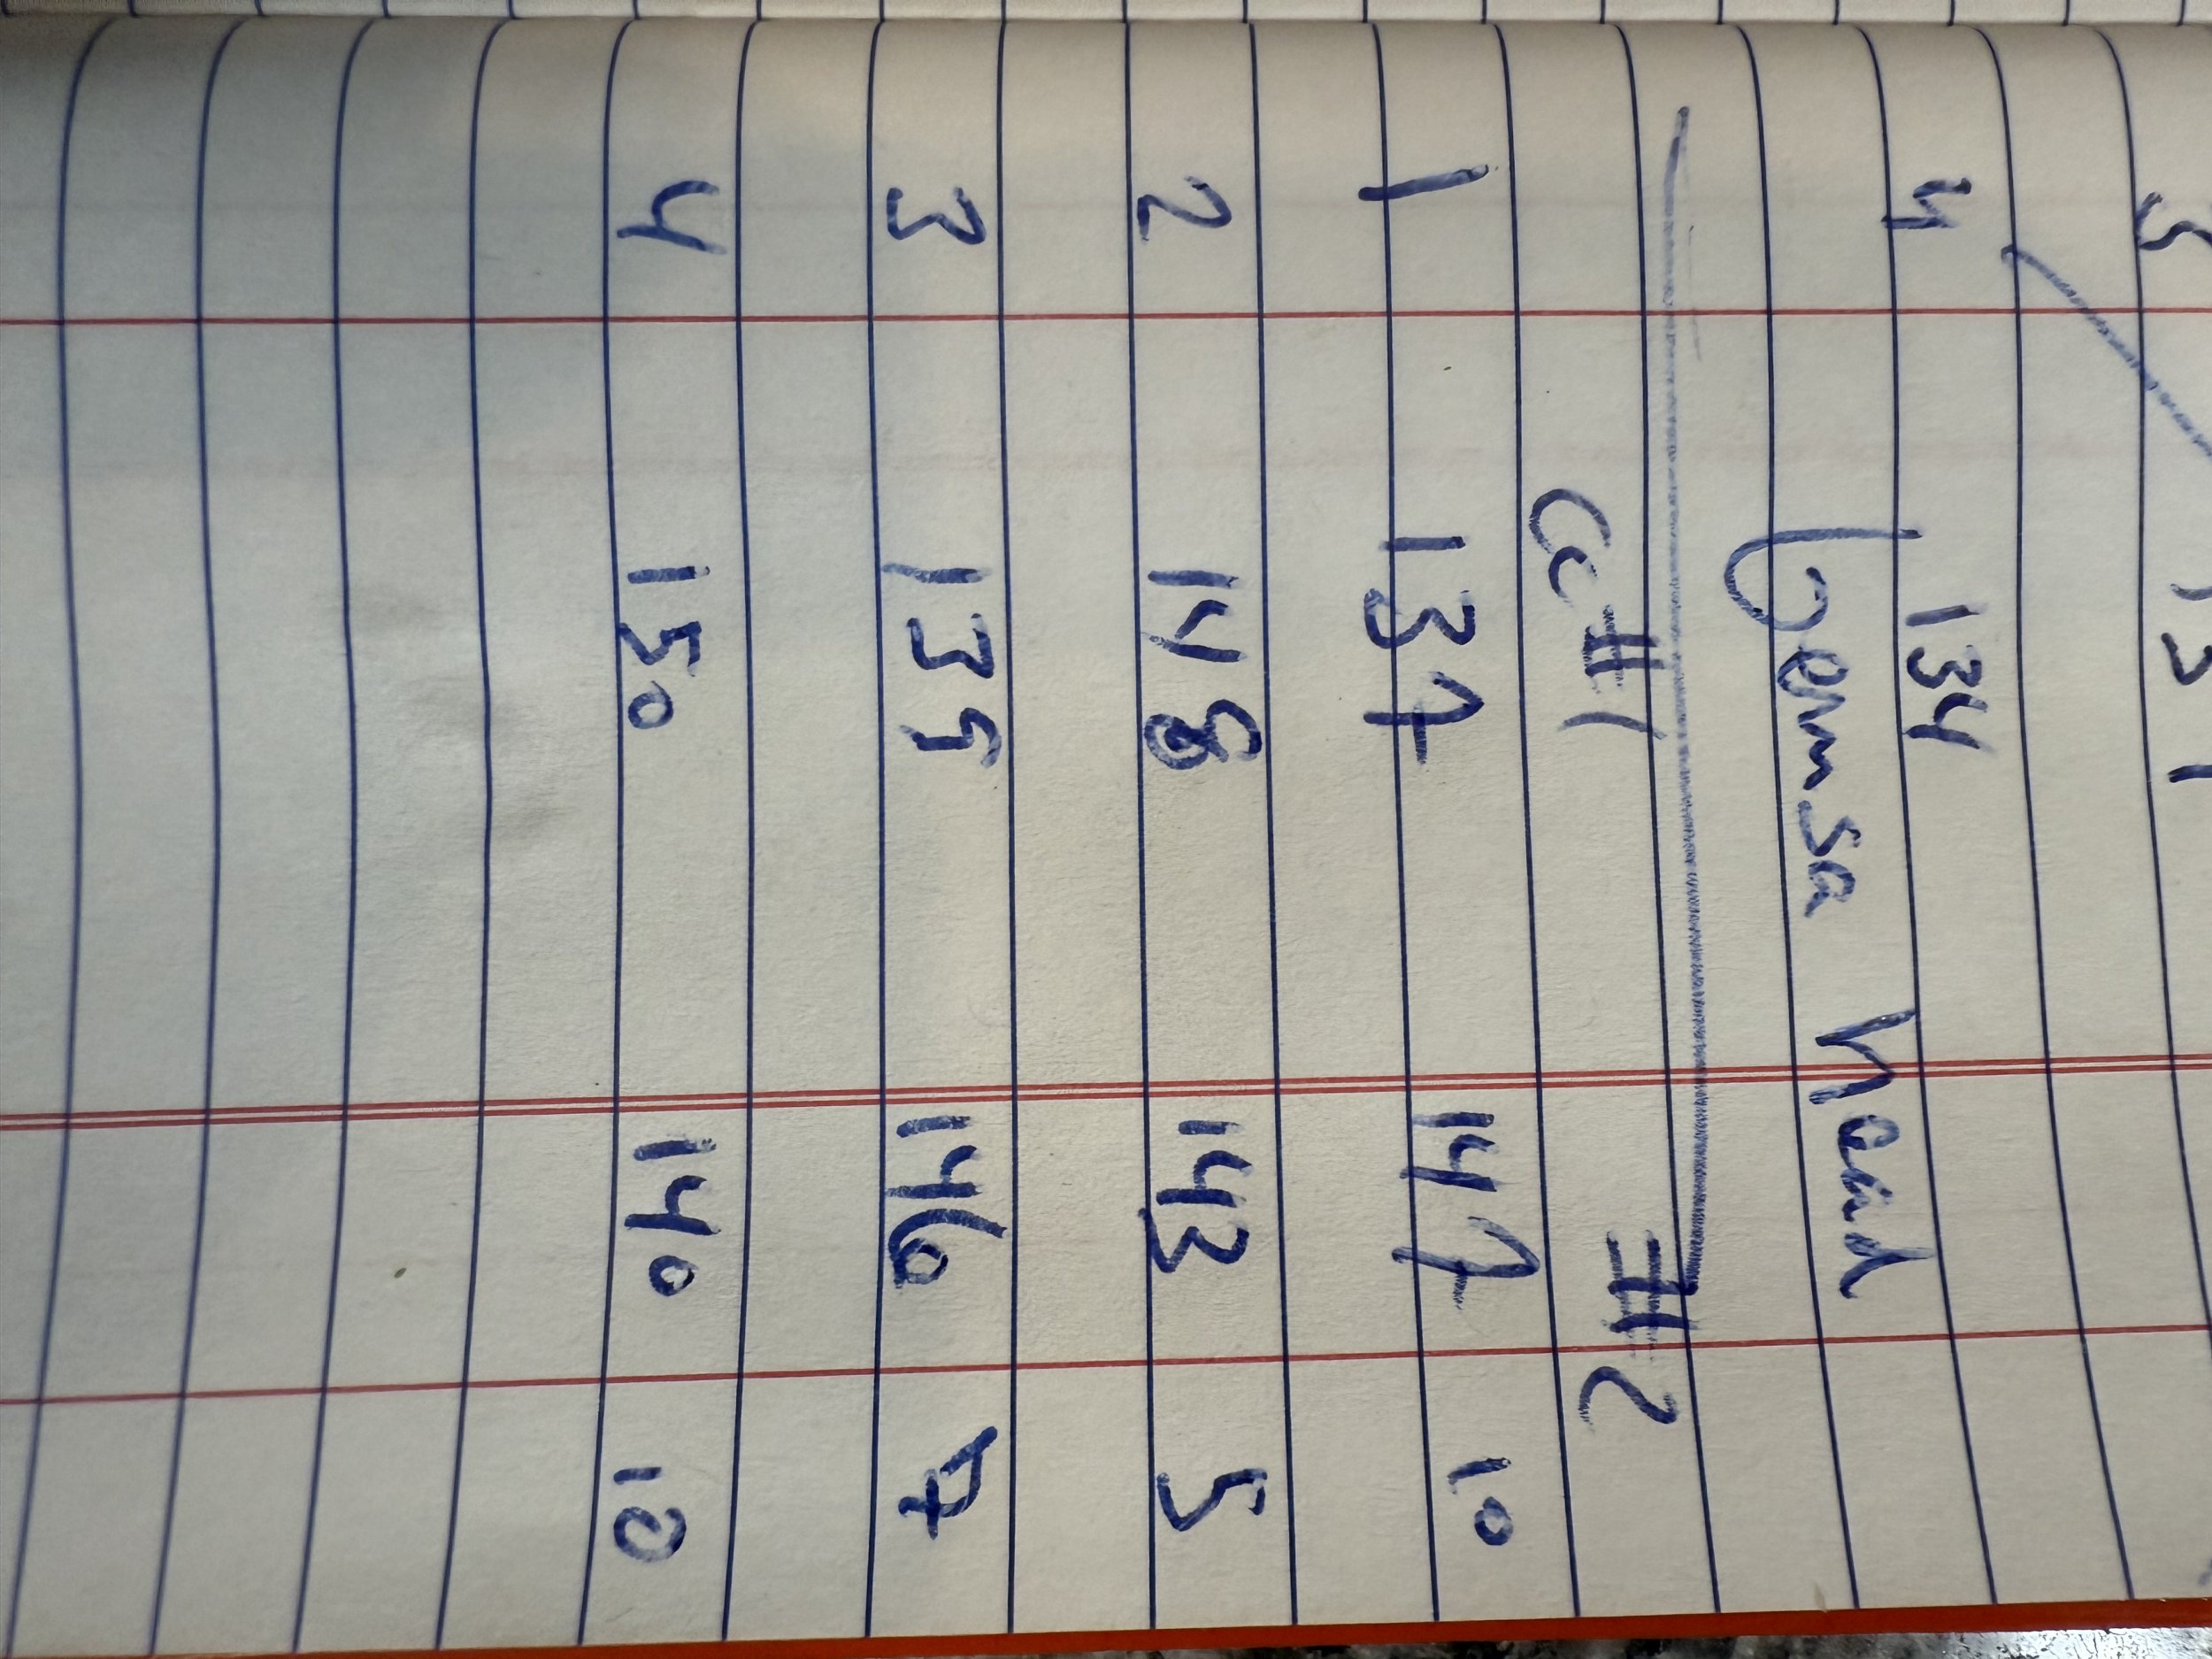 4 134
Gemsa head
CC #1 #2
1 137 147 10
2 148 143 5
3 139 146 7
4 150 140 10